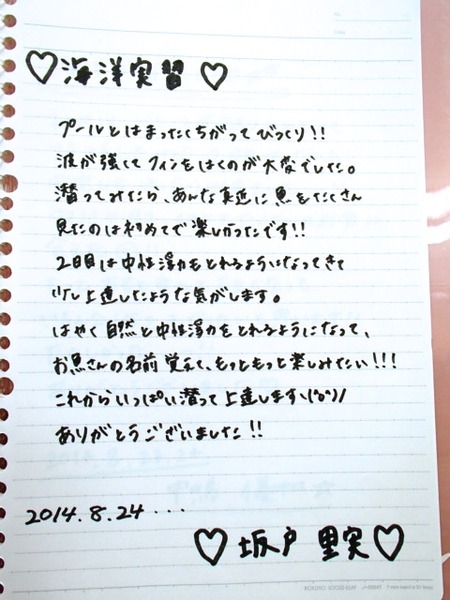 ♡海洋実習♡
プールとはまったくちがってびっくり!!
波が強くてフィンをはくのが大変でした。
潜ってみたら、あんな真近に魚をたくさん
見たのは初めてで楽しかったです!!
2日目は中性浮力をとれるようになってきて
少し上達したような気がします。
はやく自然と中性浮力をとれるようになって、
お魚さんの名前覚えて、もっともっと楽しみたい!!!
これからいっぱい潜って上達します\(^o^)/
ありがとうございました!!
2014.8.24...
♡坂戸 里実♡